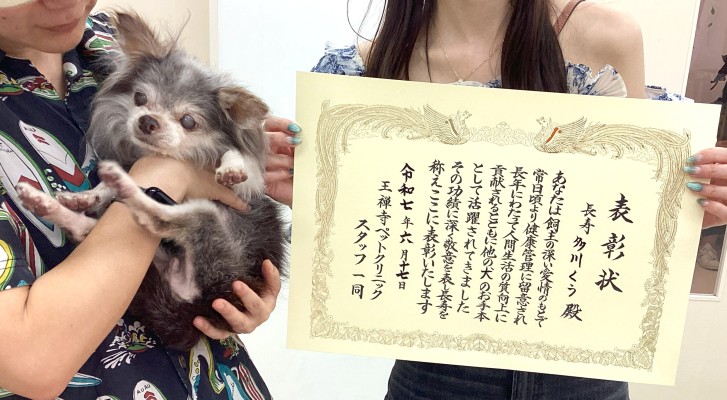 表彰状
長寿 多川くう 殿
あなたは飼主の深い愛情のもとで
常日頃より健康管理に留意され
長年にわたって人間生活の質向上に
貢献されるとともに他の犬のお手本
として活躍されてきました
その功績に深く敬意を表し長寿を
称えここに表彰いたします
令和七年六月十七日
王禅寺ペットクリニック
スタッフ一同